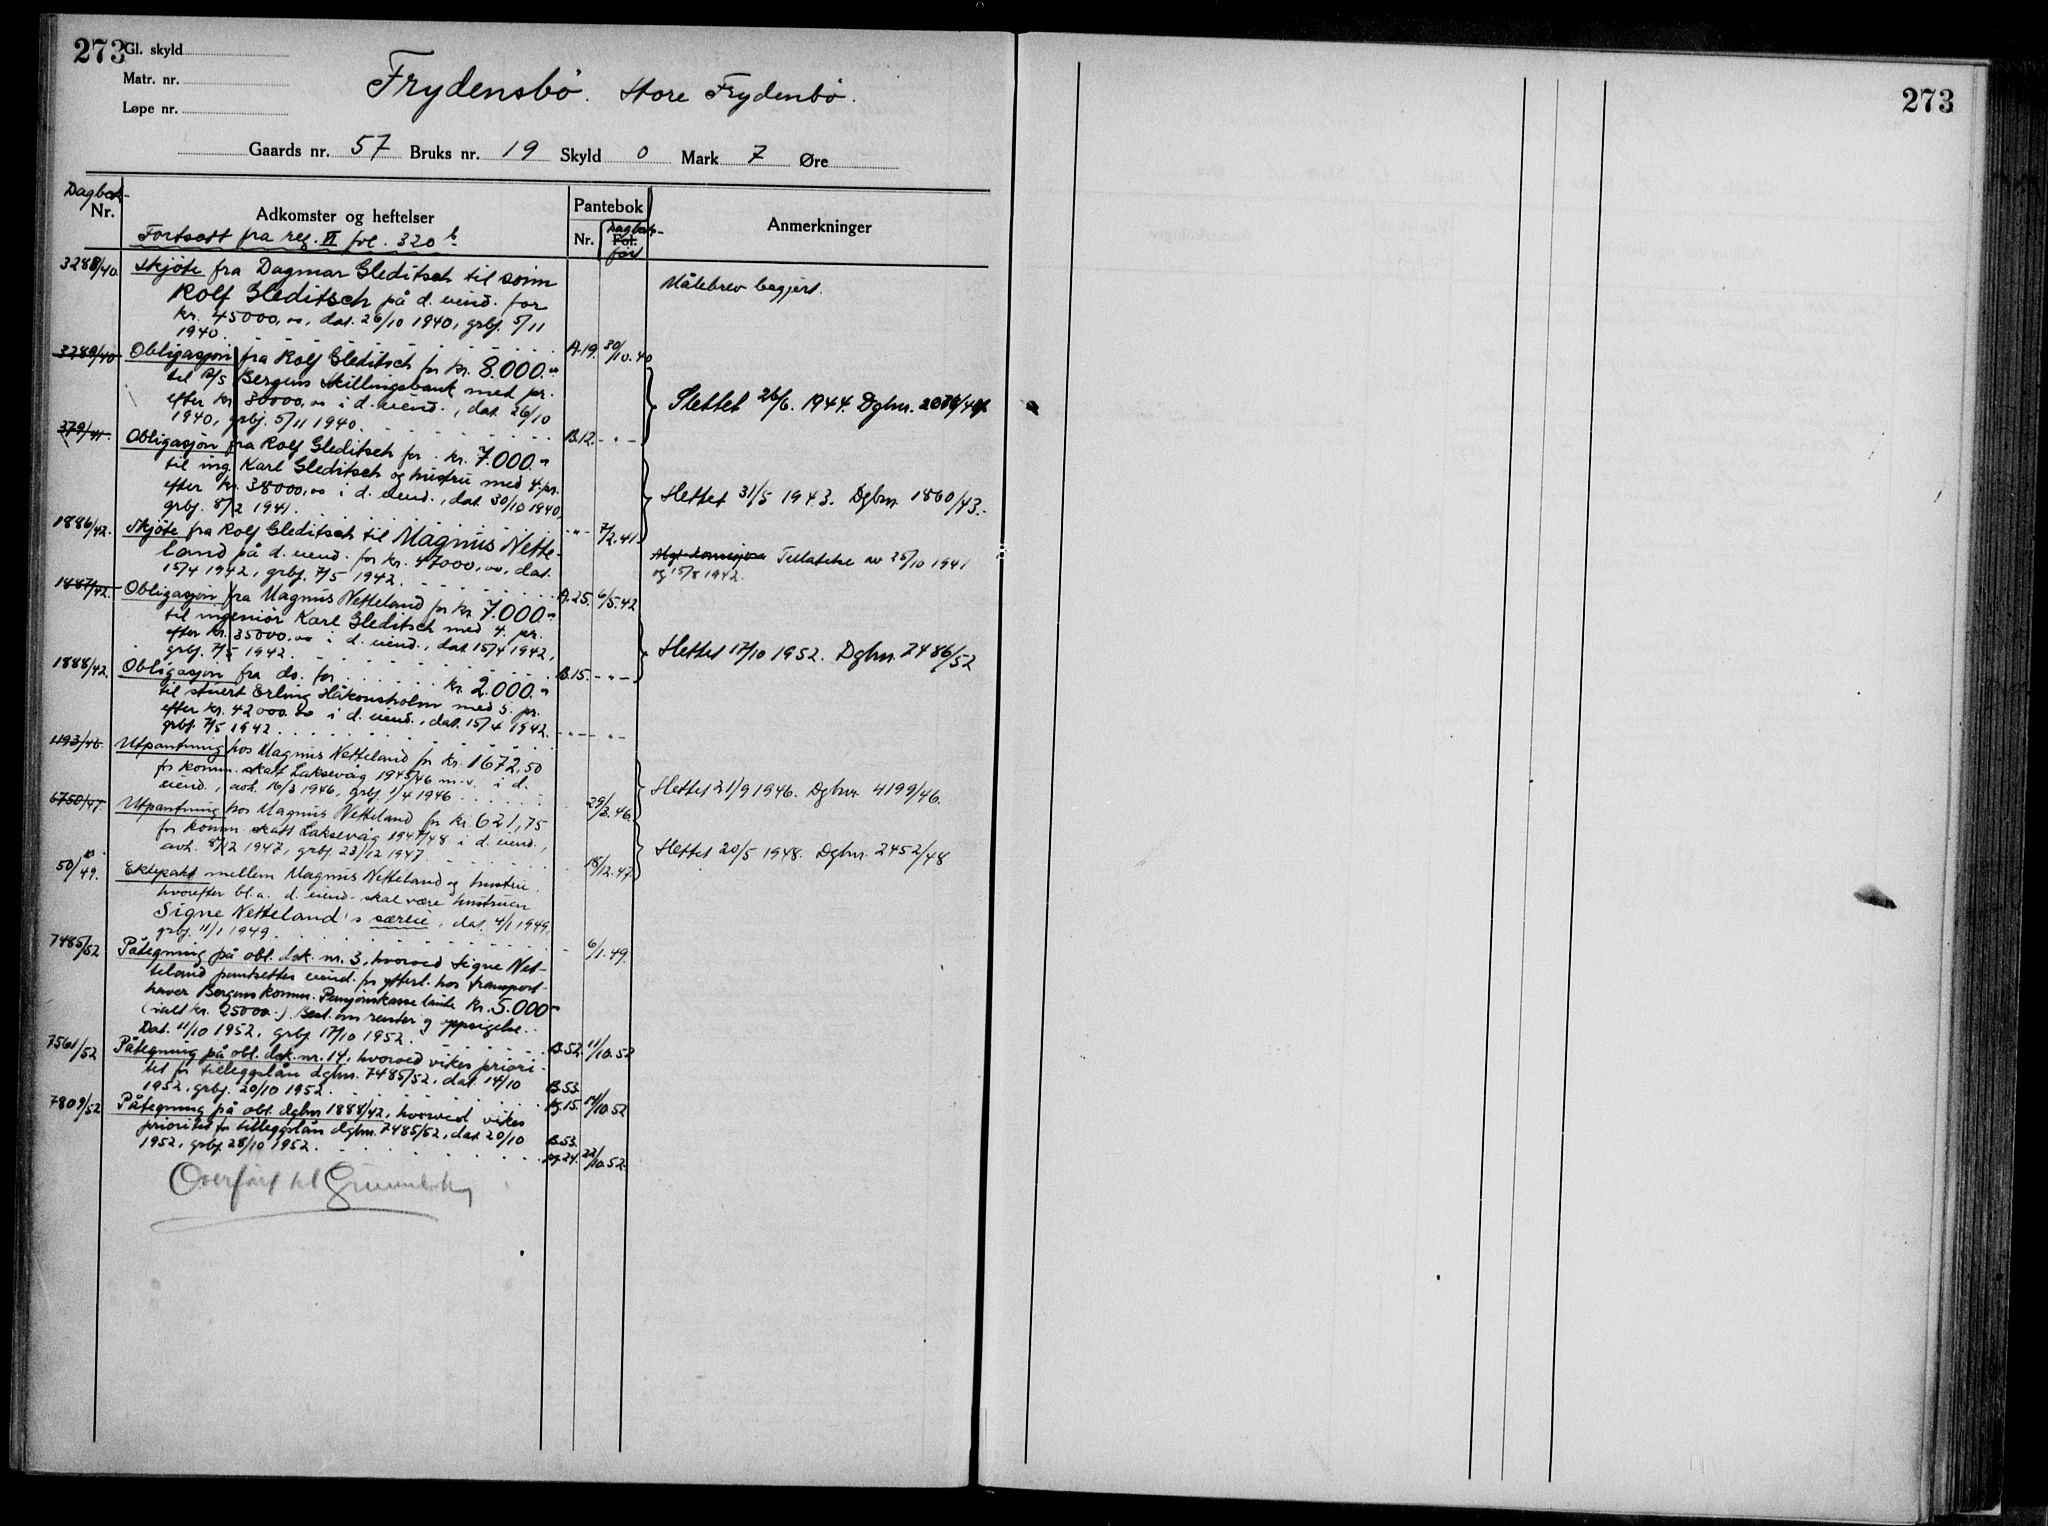 273
Gl. skyld
Matr. nr.
Løpe nr.
Frydensbö. Store Frydenbö.
Gaards nr. 57 Bruks nr. 19 Skyld 0 Mark 7 Øre
Dagbok-
Nr.
Adkomster og heftelser
Pantebok
Nr.
Fol.
Dagbok-
ført
Anmerkninger
Fortsatt fra reg. VI fol. 320 b
3288/40. Skjöte fra Dagmar Gleditsch til sönn
Rolf Gleditsch på d. eiend. for
Målebrev begjert.
kr. 45000,00, dat. 26/10 1940, grbf. 5/11
1940. A.19. 30/10.40
3289/40 Obligasjon fra Rolf Gleditsch for kr. 8.000.00
til A/S Bergens Skillingsbank med pr.
efter kr. 30000,00 i d. eiend., dat. 26/10
Slettet 26/6. 1944. Dgbnr. 2078/44
1940, grbf. 5/11 1940. B.12. - " -
379/41. Obligasjon fra Rolf Gleditsch for kr. 7.000.00
til ing. Karl Gleditsch og hustru med 4. pr.
efter kr. 38000,00 i d. eiend., dat. 30/10 1940,
Slettet 31/5 1943. Dgbnr. 1860/43.
grbf. 8/2 1941. - " - 7/2.41.
1886/42. Skjöte fra Rolf Gleditsch til Magnus Nette-
land på d. eiend. for kr. 47000,00, dat.
Tillatelse av 25/10 1941
og 15/8 1942.
15/4 1942, grbf. 7/5 1942. A.25. 6/5.42
1887/42. Obligasjon fra Magnus Netteland for kr. 7.000.00
til ingeniör Karl Gleditsch med 4. pr.
efter kr. 35000.00 i d. eiend., dat. 15/4 1942,
Slettet 17/10 1952. Dgbnr. 7486/52
grbf. 7/5 1942. B.15. - " -
1888/42. Obligasjon fra do. for kr. 2.000.00
til stuert Erling Håkonsholm med 5. pr.
efter kr. 42000.00 i d. eiend., dat. 15/4 1942.
grbf. 7/5 1942. - " - - " -
1193/46. Utpantning hos Magnus Netteland for kr. 1672,50
for komm. skatt Laksevåg 1945/46 m.v. i d.
Slettet 21/9 1946. Dgbnr. 4199/46.
eiend., avh. 16/3 1946, grbf. 1/4 1946. 29/3.46.
6750/47. Utpantning hos Magnus Netteland for kr. 621,75
for komm. skatt Laksevåg 1947/48 i d. eiend.,
Slettet 20/5 1948. Dgbnr. 2452/48
avh. 8/12 1947, grbf. 23/12 1947. 18/12.47.
50/49. Ektepakt mellem Magnus Netteland og hustru.
hvorefter bl.a. d. eiend. skal være hustruen
Signe Netteland's særeie, dat. 4/1 1949,
grbf. 11/1 1949. - 6/1.49.
7485/52 Påtegning på obl. dok. nr. 3, hvorved Signe Net-
teland pantsetter eiend. for ytterl. hos transport-
haver Bergens komm. Pensjonskasse lånte kr. 5.000.00
(ialt kr. 25000.-). Best. om renter og oppsigelse.
Dat. 11/10 1952, grbf. 17/10 1952. B.52. 11/10.52
7561/52 Påtegning på obl. dok. nr. 14, hvorved vikes priori-
tet for tilleggslån dgbnr. 7485/52, dat. 14/10
1952, grbf. 20/10 1952. B.53. pg.15. 14/10.52
7809/52 Påtegning på obl. dgbnr 1888/42, hvorved vikes
prioritet for tilleggslån dgbnr. 7485/52, dat. 20/10
1952, grbf. 28/10 1952. B.53. pg.24. 22/10.52.
Overført til Grunnbok
273